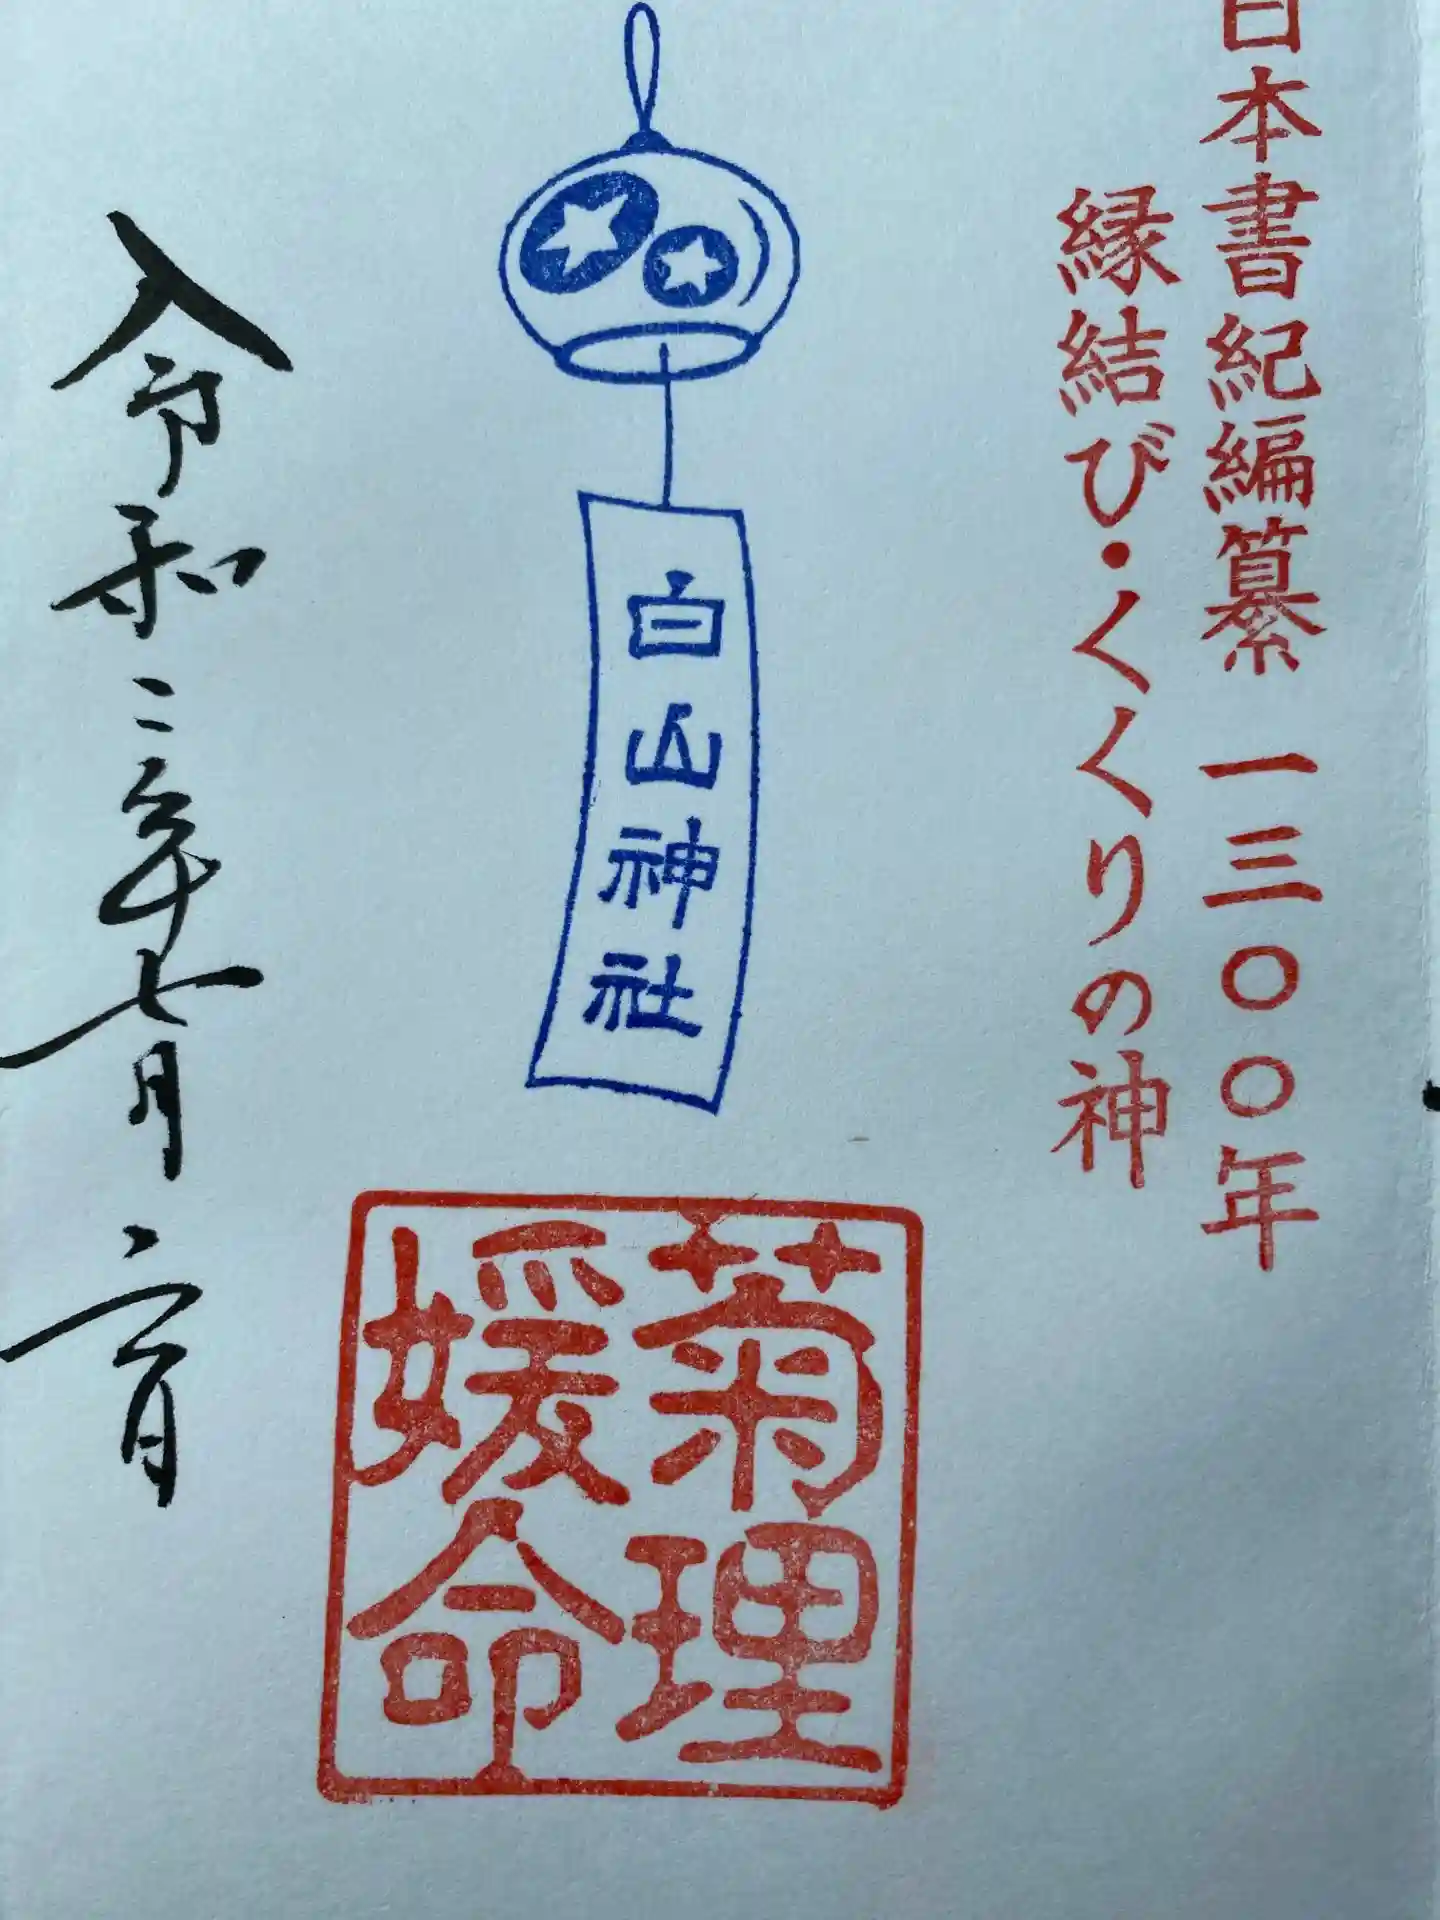 日本書紀編纂 一三〇〇年
縁結び・くくりの神
白山神社
菊理
媛命
令和二年七月六日